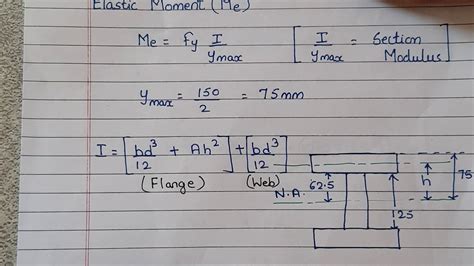 Elastic Moment (Me)
Me = fy I/ymax [ I/ymax = Section Modulus ]
ymax = 150/2 = 75mm
I = [ bd³/12 + Ah² ] + [ bd³/12 ]
(Flange) (Web)
62.5 h 75
N.A.
125